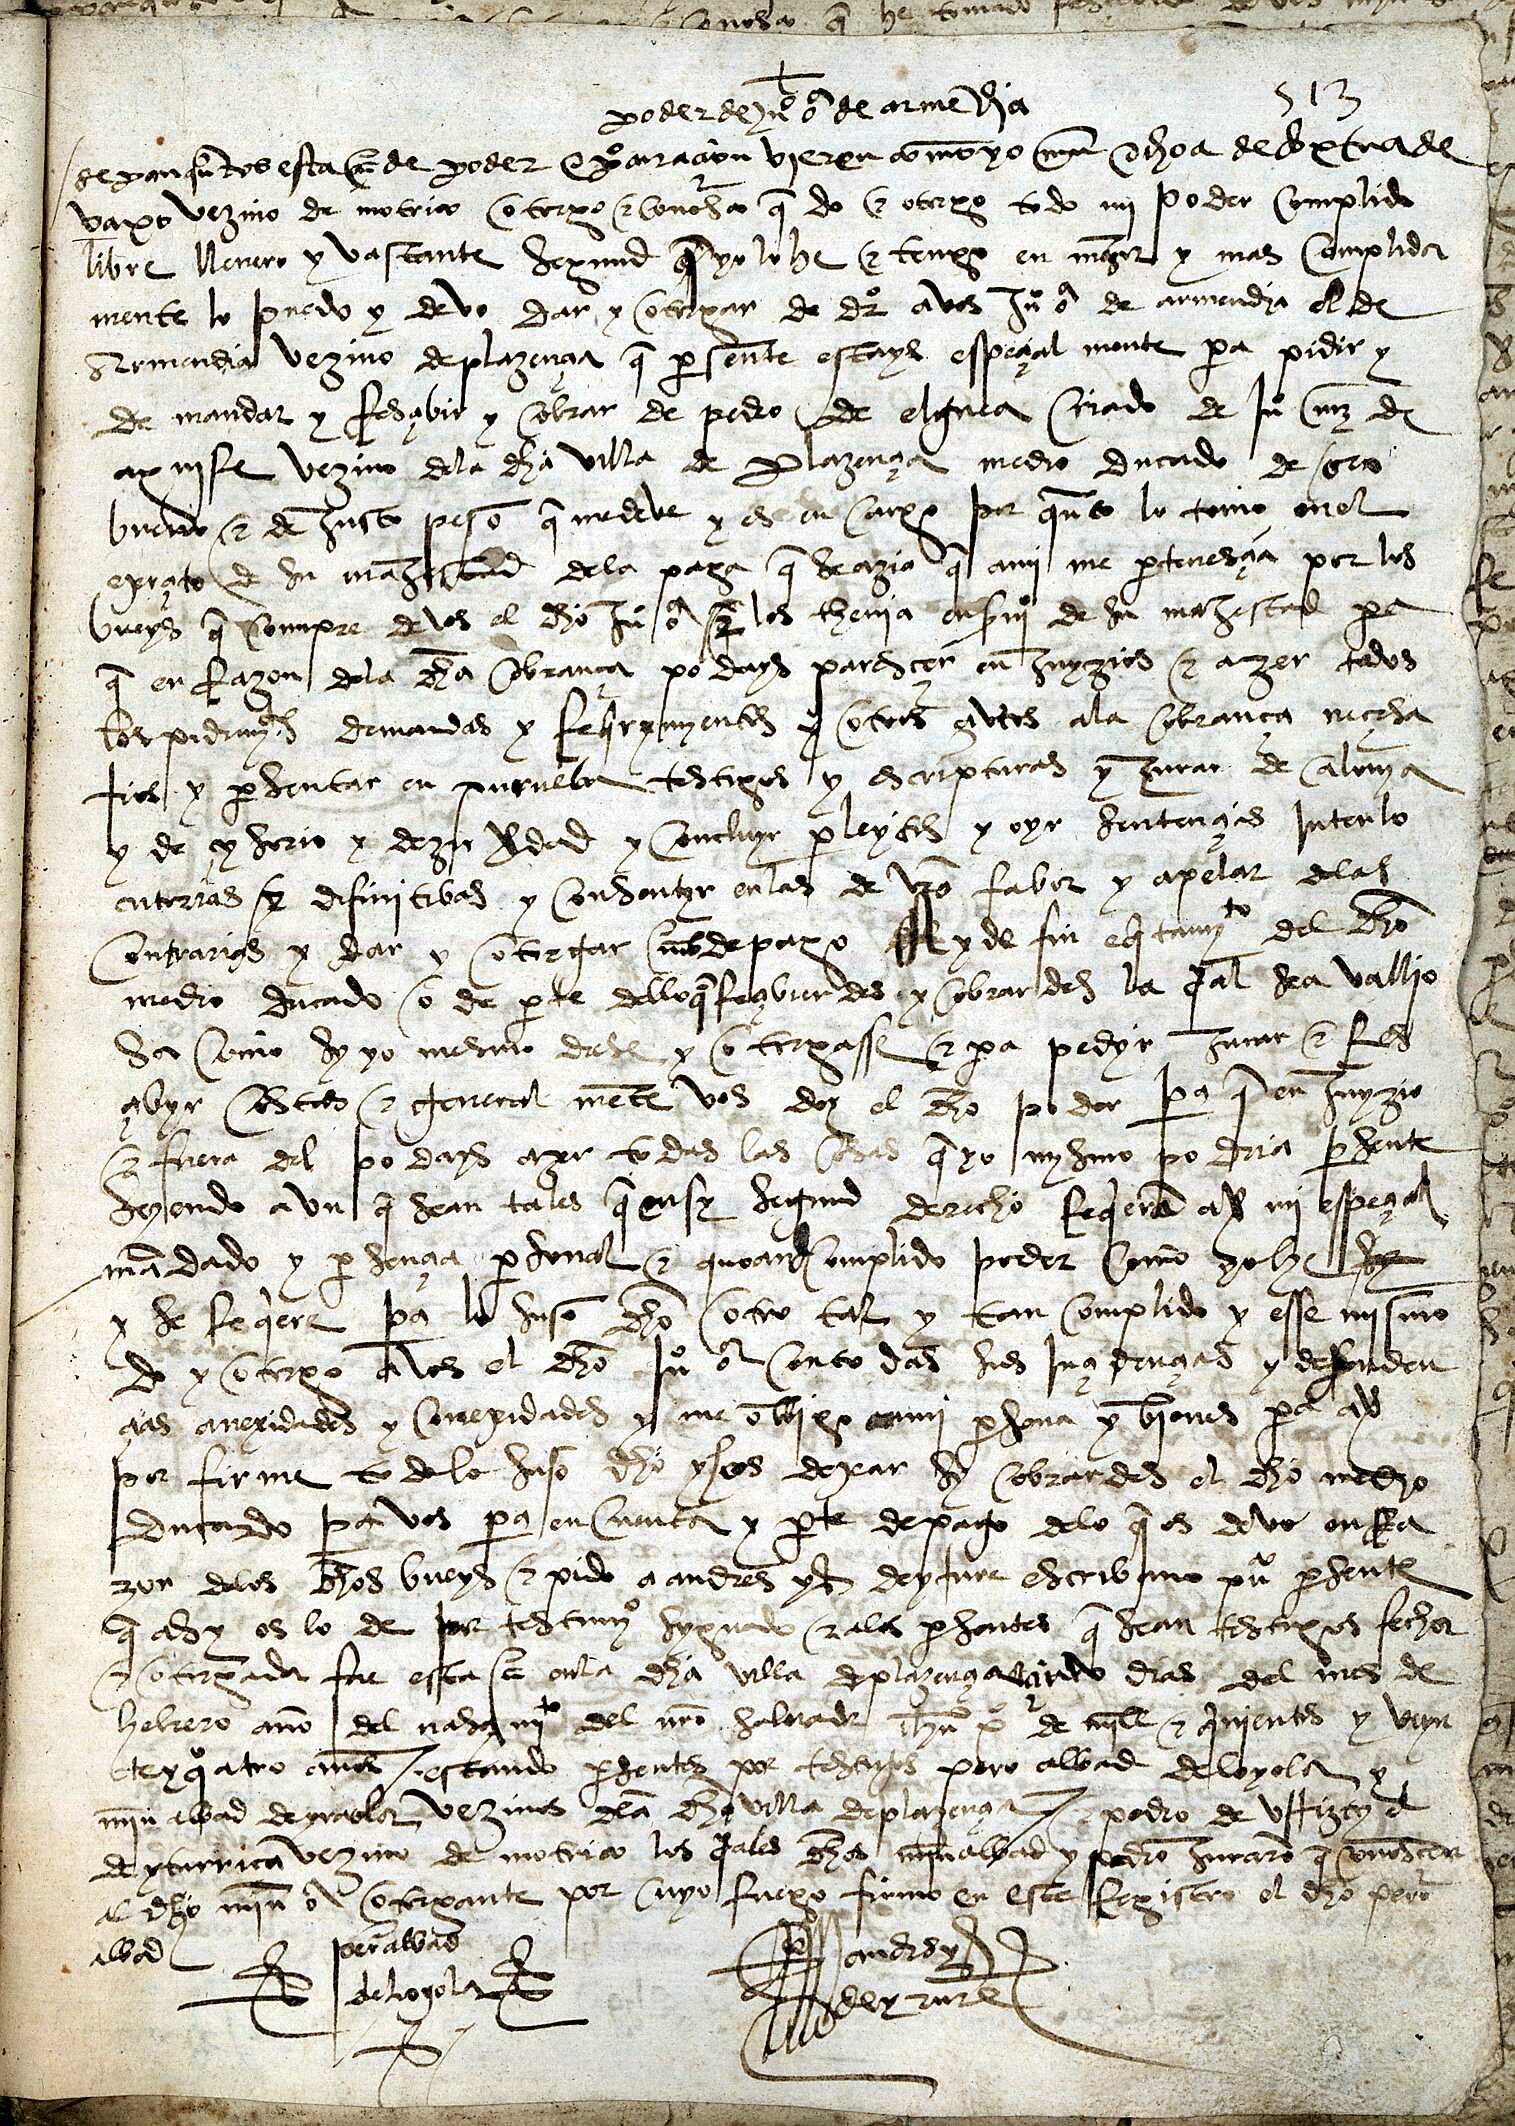 poder de Ju° o° de armēdia
513
Sepan quātos esta cā de poder e procuraciōn vieren como yo mīn ochoa de
vaxo vezino de motrico otorgo e conozco q do e otorgo todo mi poder complido
libre llenero y vastante segund q yo lo he e tengo en mejor y mas complida
mente lo puedo y devo dar y otorgar de dr° a vos Ju° o° de armendia el de
Armendia vezino de plazençia q presente estays espeçial mente pa pidir y
de mandar y resçibir y cobrar de pedro de elgueta criado de Ju° mrz de
vezino dela dha villa de plazençia medio ducado de oro
bueno e de justo peso q me deve y es en cargo por quāto lo tomo en el
exerçito de su majestad dela paga q se azia q a mi me perteneçia por los
bueys q compre de vos el dho Ju° o° e los thenia en serui° de su majestad pa
q en razon dela dha cobrança podays paresçer en juyzios e azer todos
los pidimy°s demandas y requerymyentos y otros autos ala cobrança neçesa
rios y presentar en prueba testigos y escripturas y jurar de calunya
y de çisorio y dezir verdad y concluyr pleytos y oyr sentençias interlo
cutorias e difinitibas y consentyr en las de vro fabor y apelar delas
contrarias y dar y otorgar carta de pago y de fin e quitamyto del dho
medio ducado o de parte dello q resçibierdes y cobrardes la qual sea vallio
sa como sy yo mesmo diese y otorgasse e pa pedyr jurar e res
çibyr costas e general mēte vos doy el dho poder pa q en juyzio
e fuera del podays azer todas las cosas q yo mysmo podria presente
seyendo avn q sean tales q en sy segund derecho requerā aver mi espeçial
mādado y presençia personal e quand complido poder como yo he
y se requiere pa lo suso dho otro tal y tan complido y esse mismo
do y otorgo a vos el dho Ju° o° con todas sus inçidençias y dependen
çias anexidades y conexidades y me obligo con mi persona y bienes pa aver
por firme todo lo suso dho y vos dexar sy cobrardes el dho medio
ducado pa vos pa en cuenta y parte de pago delo q os devo en ra
zon delos dhos bueys e pido a andres mrz de yrure escribano pu° presente
q asy os lo de por testimy° sygnado e alos presentes q sean testigos fecha
e otorgada fue esta cā en la dha villa de plazençia dias del mes de
hebrero año del nasçimito del nro salvador ihu xp° de mill e quinientos y veyn
te y quatro años estando presentes por testigos pero abbad de loyola y
mīn abbad de vezinos dela dha villa de plazençia e pedro de
de yturrica vezino de motrico los quales dhos mīn abbad y pedro juraron q conosçen
al dho mīn o° otorgante por cuyo ruego firmo en este registro el dho pero
abbad
per abbad
de loyola
andres mrz
de yrure